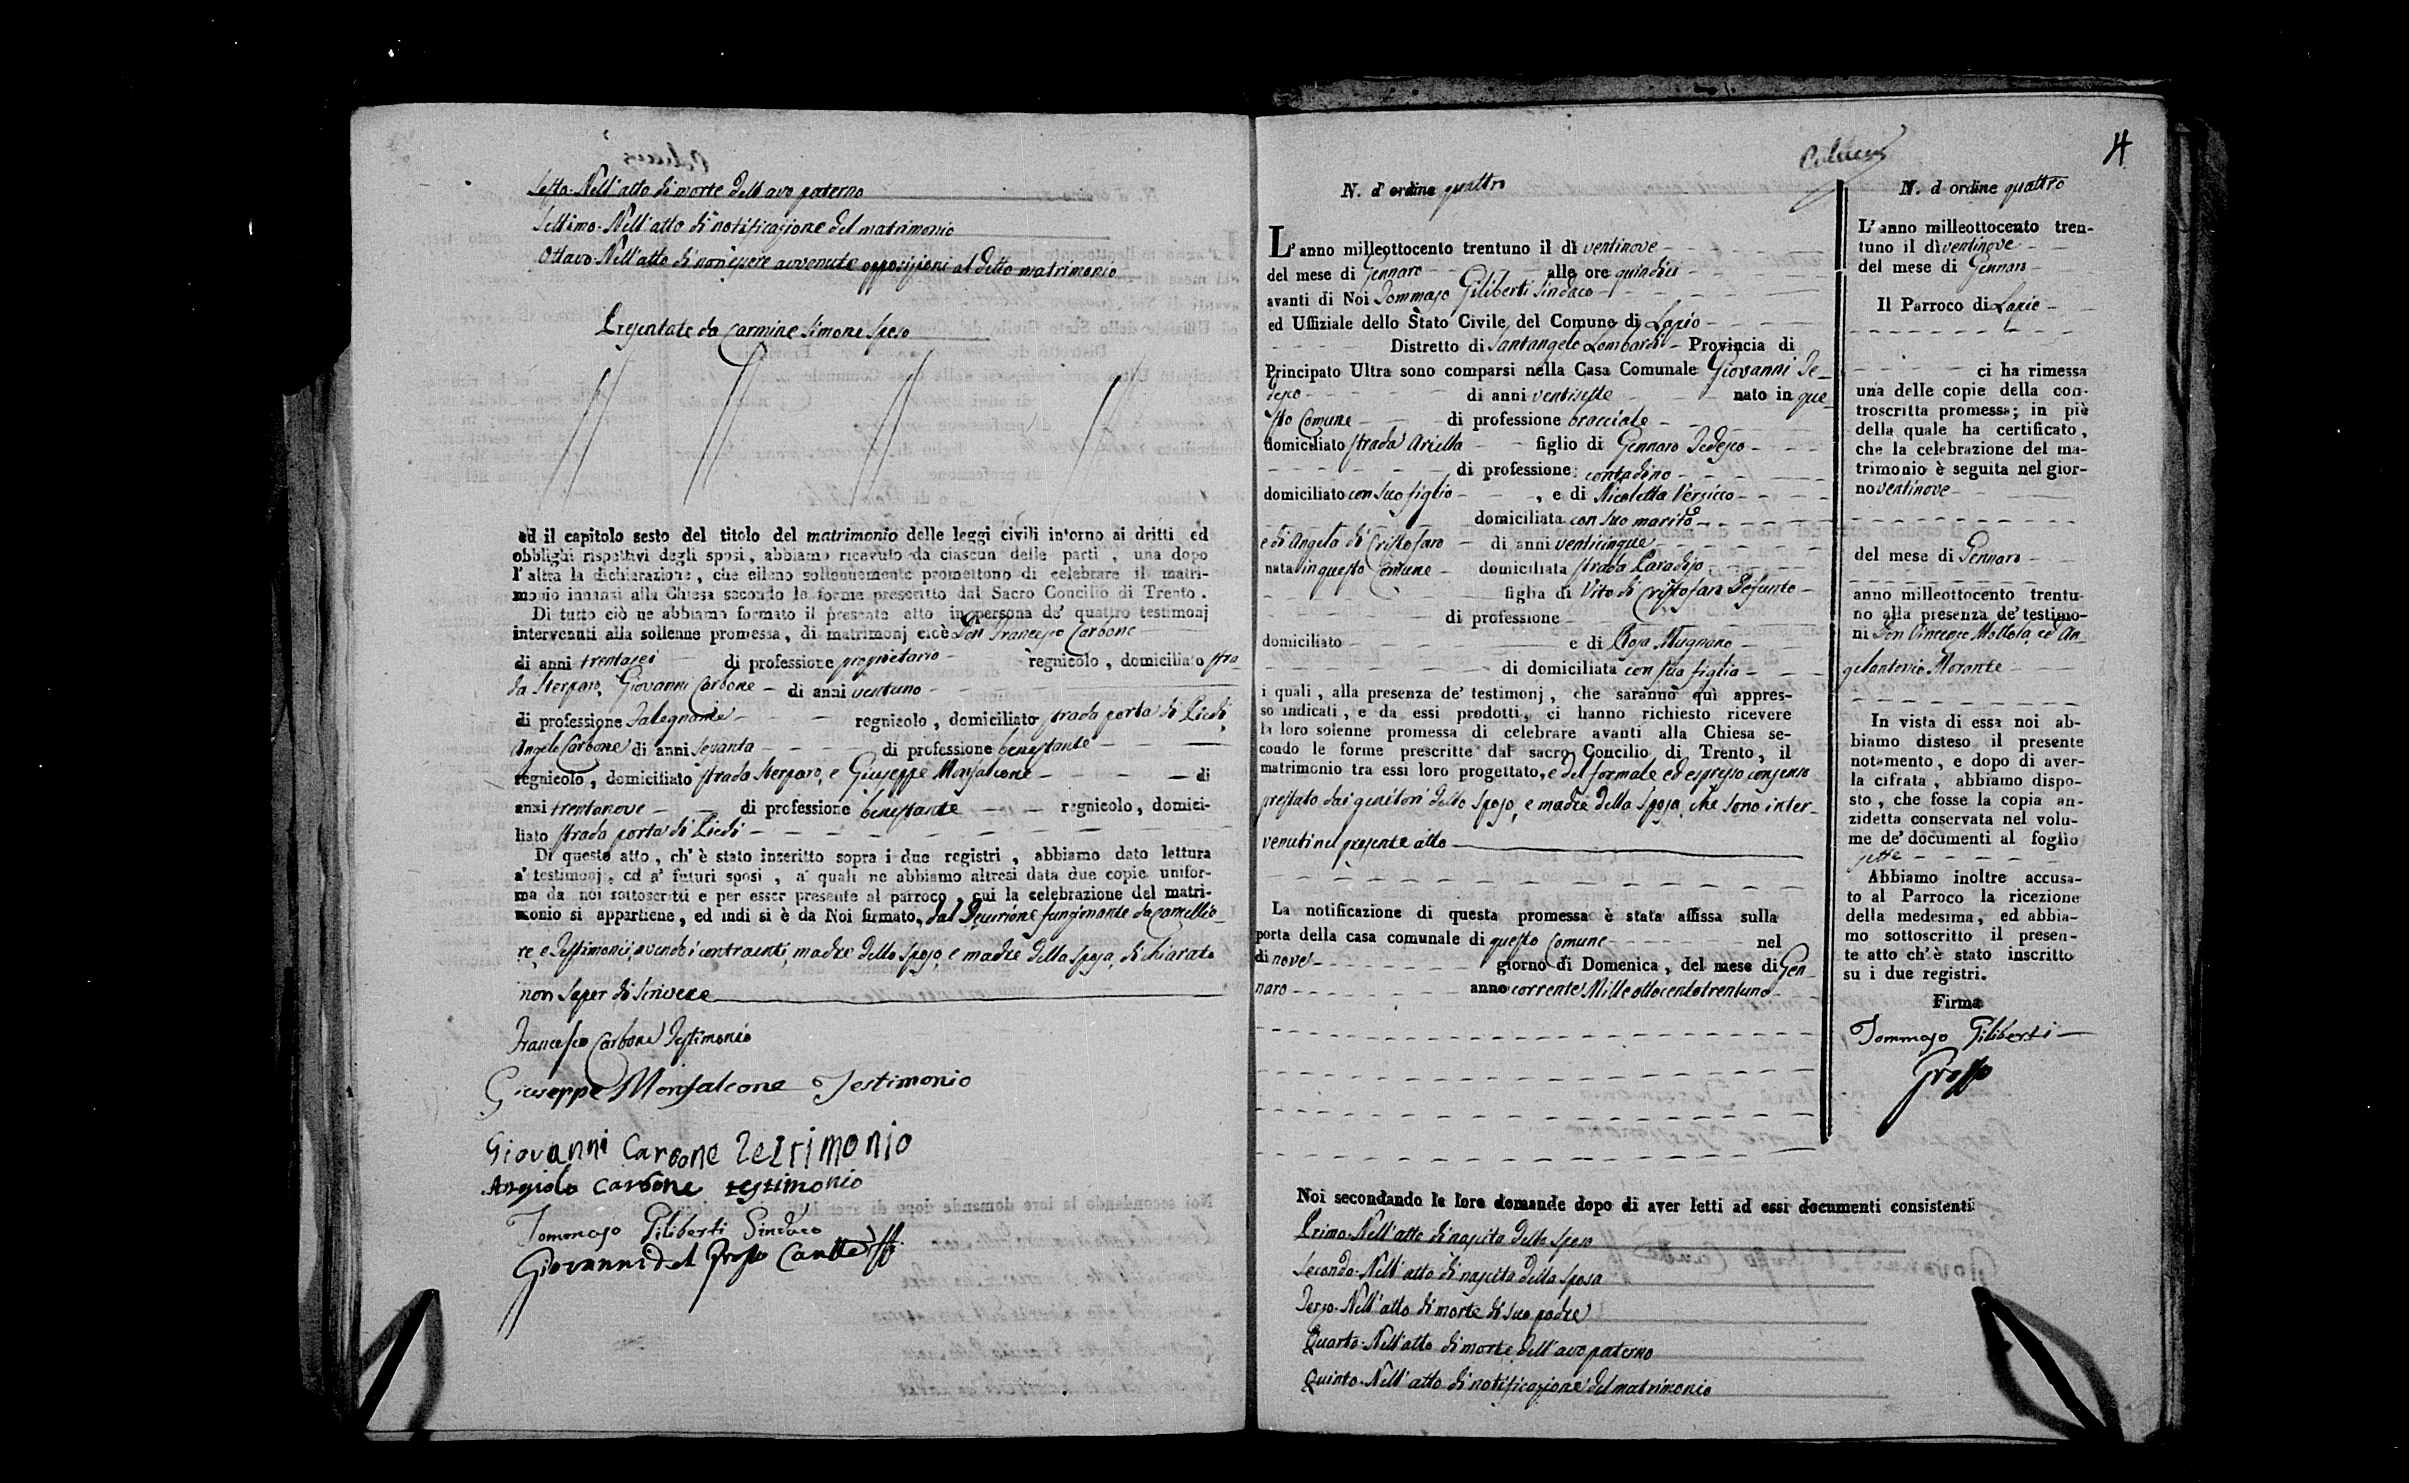 Sesto. Nell'atto di morte dell'avo paterno
Settimo. Nell'atto di notificazione del matrimonio
Ottavo. Nell'atto di non essere avvenute opposizioni al detto matrimonio
Presentate da Carmine Simone sposo
ed il capitolo sesto del titolo del matrimonio delle leggi civili intorno ai dritti ed
obblighi rispettivi degli sposi, abbiamo ricevuto da ciascun delle parti, una dopo
l'altra la dichiarazione, che elleno sollennemente promettono di celebrare il matri-
monio innanzi alla Chiesa secondo le forme prescritto dal Sacro Concilio di Trento.
Di tutto ciò ne abbiamo formato il presente atto in persona de' quattro testimonj
intervenuti alla sollenne promessa, di matrimonj cioè Don Francesco Carbone
di anni trentasei di professione proprietario regnicolo, domiciliato stra
da Sterparo, Giovanni Carbone di anni ventuno
di professione Falegname regnicolo, domiciliato strada porta di Piedi,
Angelo Carbone di anni sessanta di professione benestante
regnicolo, domiciliato strada Sterparo, e Giuseppe Monfalcone di
anni trentanove di professione benestante regnicolo, domici-
liato strada porta di Piedi
Di questo atto, ch'è stato inscritto sopra i due registri, abbiamo dato lettura
a' testimonj, ed a' futuri sposi, a' quali ne abbiamo altresì data due copie unifor-
ma da noi sottoscritti e per esser presente al parroco, cui la celebrazione del matri-
monio si appartiene, ed indi si è da Noi firmato, dal Decurione funzionante da cancellie-
re, e Testimonii, avendo i contraenti, madre dello sposo, e madre della sposa, dichiarato
non saper di scrivere
Francesco Carbone Testimonio
Giuseppe Monfalcone Testimonio
Giovanni Carbone Testimonio
Angiolo Carbone testimonio
Tommaso Giliberti Sindaco
Giovanni del Grosso
4
N. d'ordine quattro
L'anno milleottocento trentuno il dì ventinove
del mese di Gennaro alle ore quindici
avanti di Noi Tommaso Giliberti Sindaco
ed Uffiziale dello Stato Civile del Comune di Lapio
Distretto di Santangelo Lombardi Provincia di
Principato Ultra sono comparsi nella Casa Comunale Giovanni Te-
desco di anni ventisette nato in que-
sto Comune di professione bracciale
domiciliato strada Ariella figlio di Gennaro Tedesco
di professione contadino
domiciliato con suo figlio, e di Nicoletta Versicco
domiciliata con suo marito
e di Angela di Cristofaro di anni venticinque
nata in questo Comune domiciliata strada Paradiso
figlia di Vito di Cristofaro Defunto
di professione
domiciliato e di Rosa Mugnano
di domiciliata con sua figlia
i quali, alla presenza de' testimonj, che saranno quì appres-
so indicati, e da essi prodotti, ci hanno richiesto ricevere
la loro solenne promessa di celebrare avanti alla Chiesa se-
condo le forme prescritte dal sacro Concilio di Trento, il
matrimonio tra essi loro progettato, e del formale ed espresso consenso
prestato dai genitori dello sposo, e madre della sposa, che sono inter-
venuti nel presente atto
La notificazione di questa promessa è stata affissa sulla
porta della casa comunale di questo Comune nel
di nove giorno di Domenica, del mese di Gen-
naro anno corrente Mille ottocento trentuno
Noi secondando le loro domande dopo di aver letti ad essi documenti consistenti
Primo. Nell'atto di nascita dello sposo
Secondo. Nell'atto di nascita della sposa
Terzo. Nell'atto di morte di suo padre
Quarto. Nell'atto di morte dell'avo paterno
Quinto. Nell'atto di notificazione del matrimonio
N. d ordine quattro
L'anno milleottocento tren-
tuno il dì ventinove
del mese di Gennaro
Il Parroco di Lapio
ci ha rimessa
una delle copie della con-
troscritta promessa; in piè
della quale ha certificato,
che la celebrazione del ma-
trimonio è seguita nel gior-
no ventinove
del mese di Gennaro
anno milleottocento trentu-
no alla presenza de' testimo-
ni Don Vincenzo Mottola, ed An-
gelantonio Morante
In vista di essa noi ab-
biamo disteso il presente
notamento, e dopo di aver-
la cifrata, abbiamo dispo-
sto, che fosse la copia an-
zidetta conservata nel volu-
me de' documenti al foglio
sette
Abbiamo inoltre accusa-
to al Parroco la ricezione
della medesima, ed abbia-
mo sottoscritto il presen-
te atto ch'è stato inscritto
su i due registri.
Firma
Tommaso Giliberti
Grosso